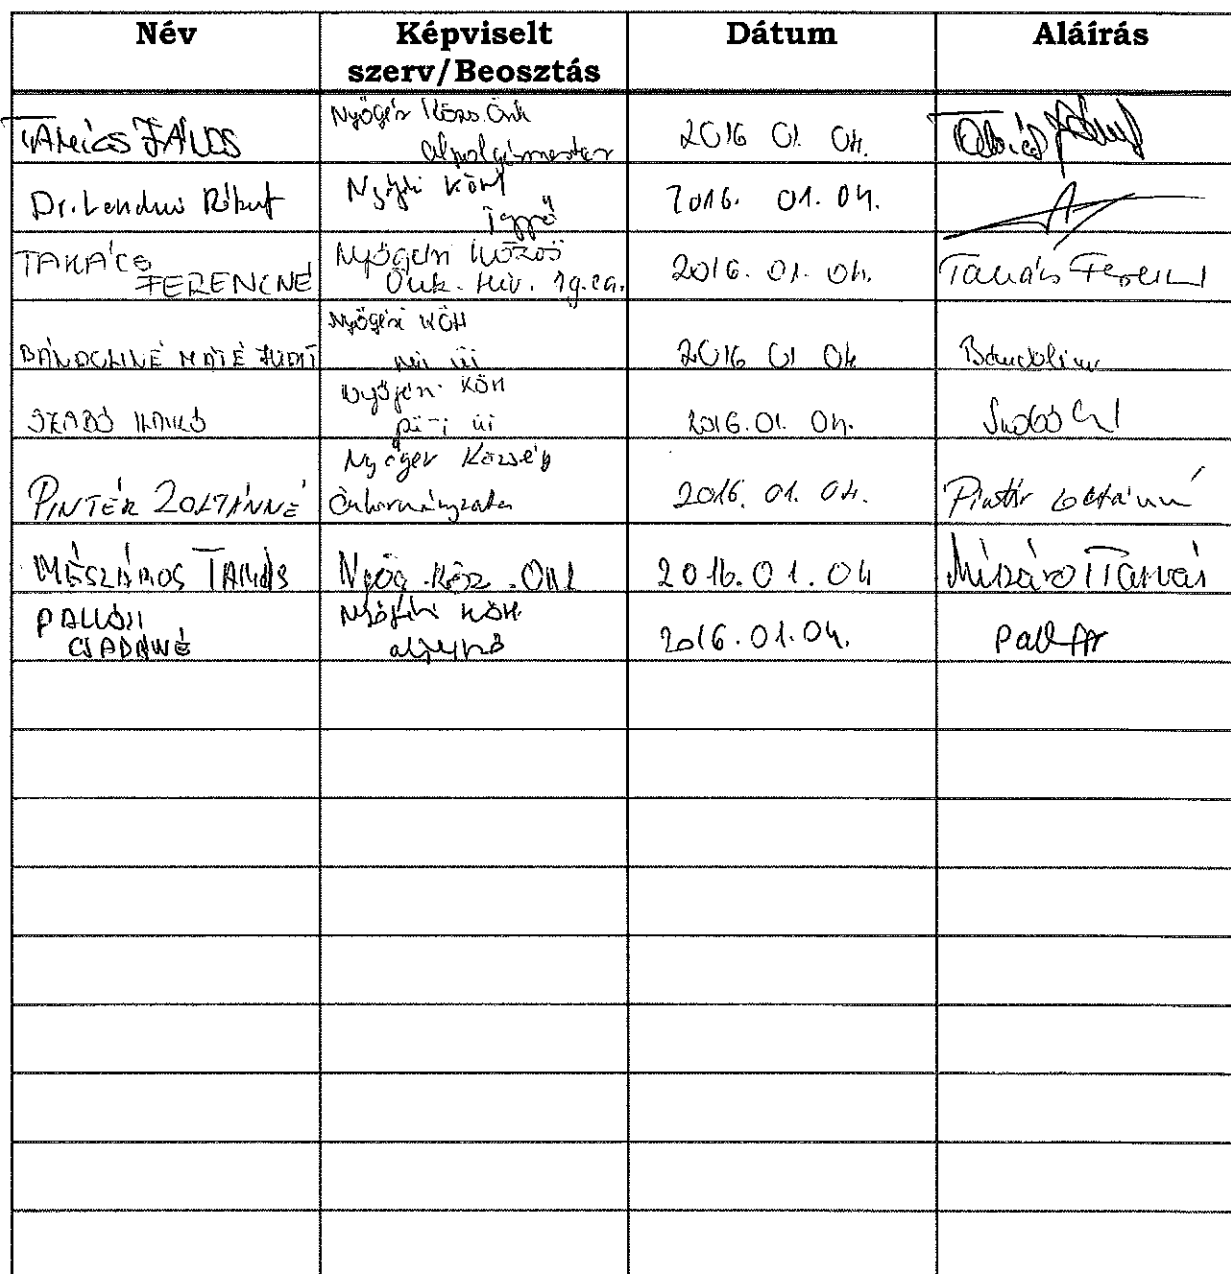 Név Képviselt szerv/Beosztás Dátum Aláírás
TAKÁCS JÁNOS Nyőgér Közs. Önk alpolgármester 2016 01. 04. Takács János
Dr. Lendvai Róbert Nyőgéri KÖH jegyző 2016. 01. 04.
TAKÁCS FERENCNÉ Nyőgéri Közös Önk. Hiv. ig.ea. 2016. 01. 04. Takács Ferencné
BÁNDOLINÉ MÁTÉ JUDIT Nyőgéri KÖH üi 2016 01 04 Bándoliné
SZABÓ ILDIKÓ Nyőgéri KÖH üi 2016. 01. 04. Szabó
PINTÉR ZOLTÁNNÉ Nyőgér Község Önkormányzata 2016. 01. 04. Pintér Zoltánné
MÉSZÁROS TAMÁS Nyőg. Köz. Önk 2016. 01. 04 Mészáros Tamás
CSABÁNÉ Nyőgéri KÖH aljegyző 2016. 01. 04.